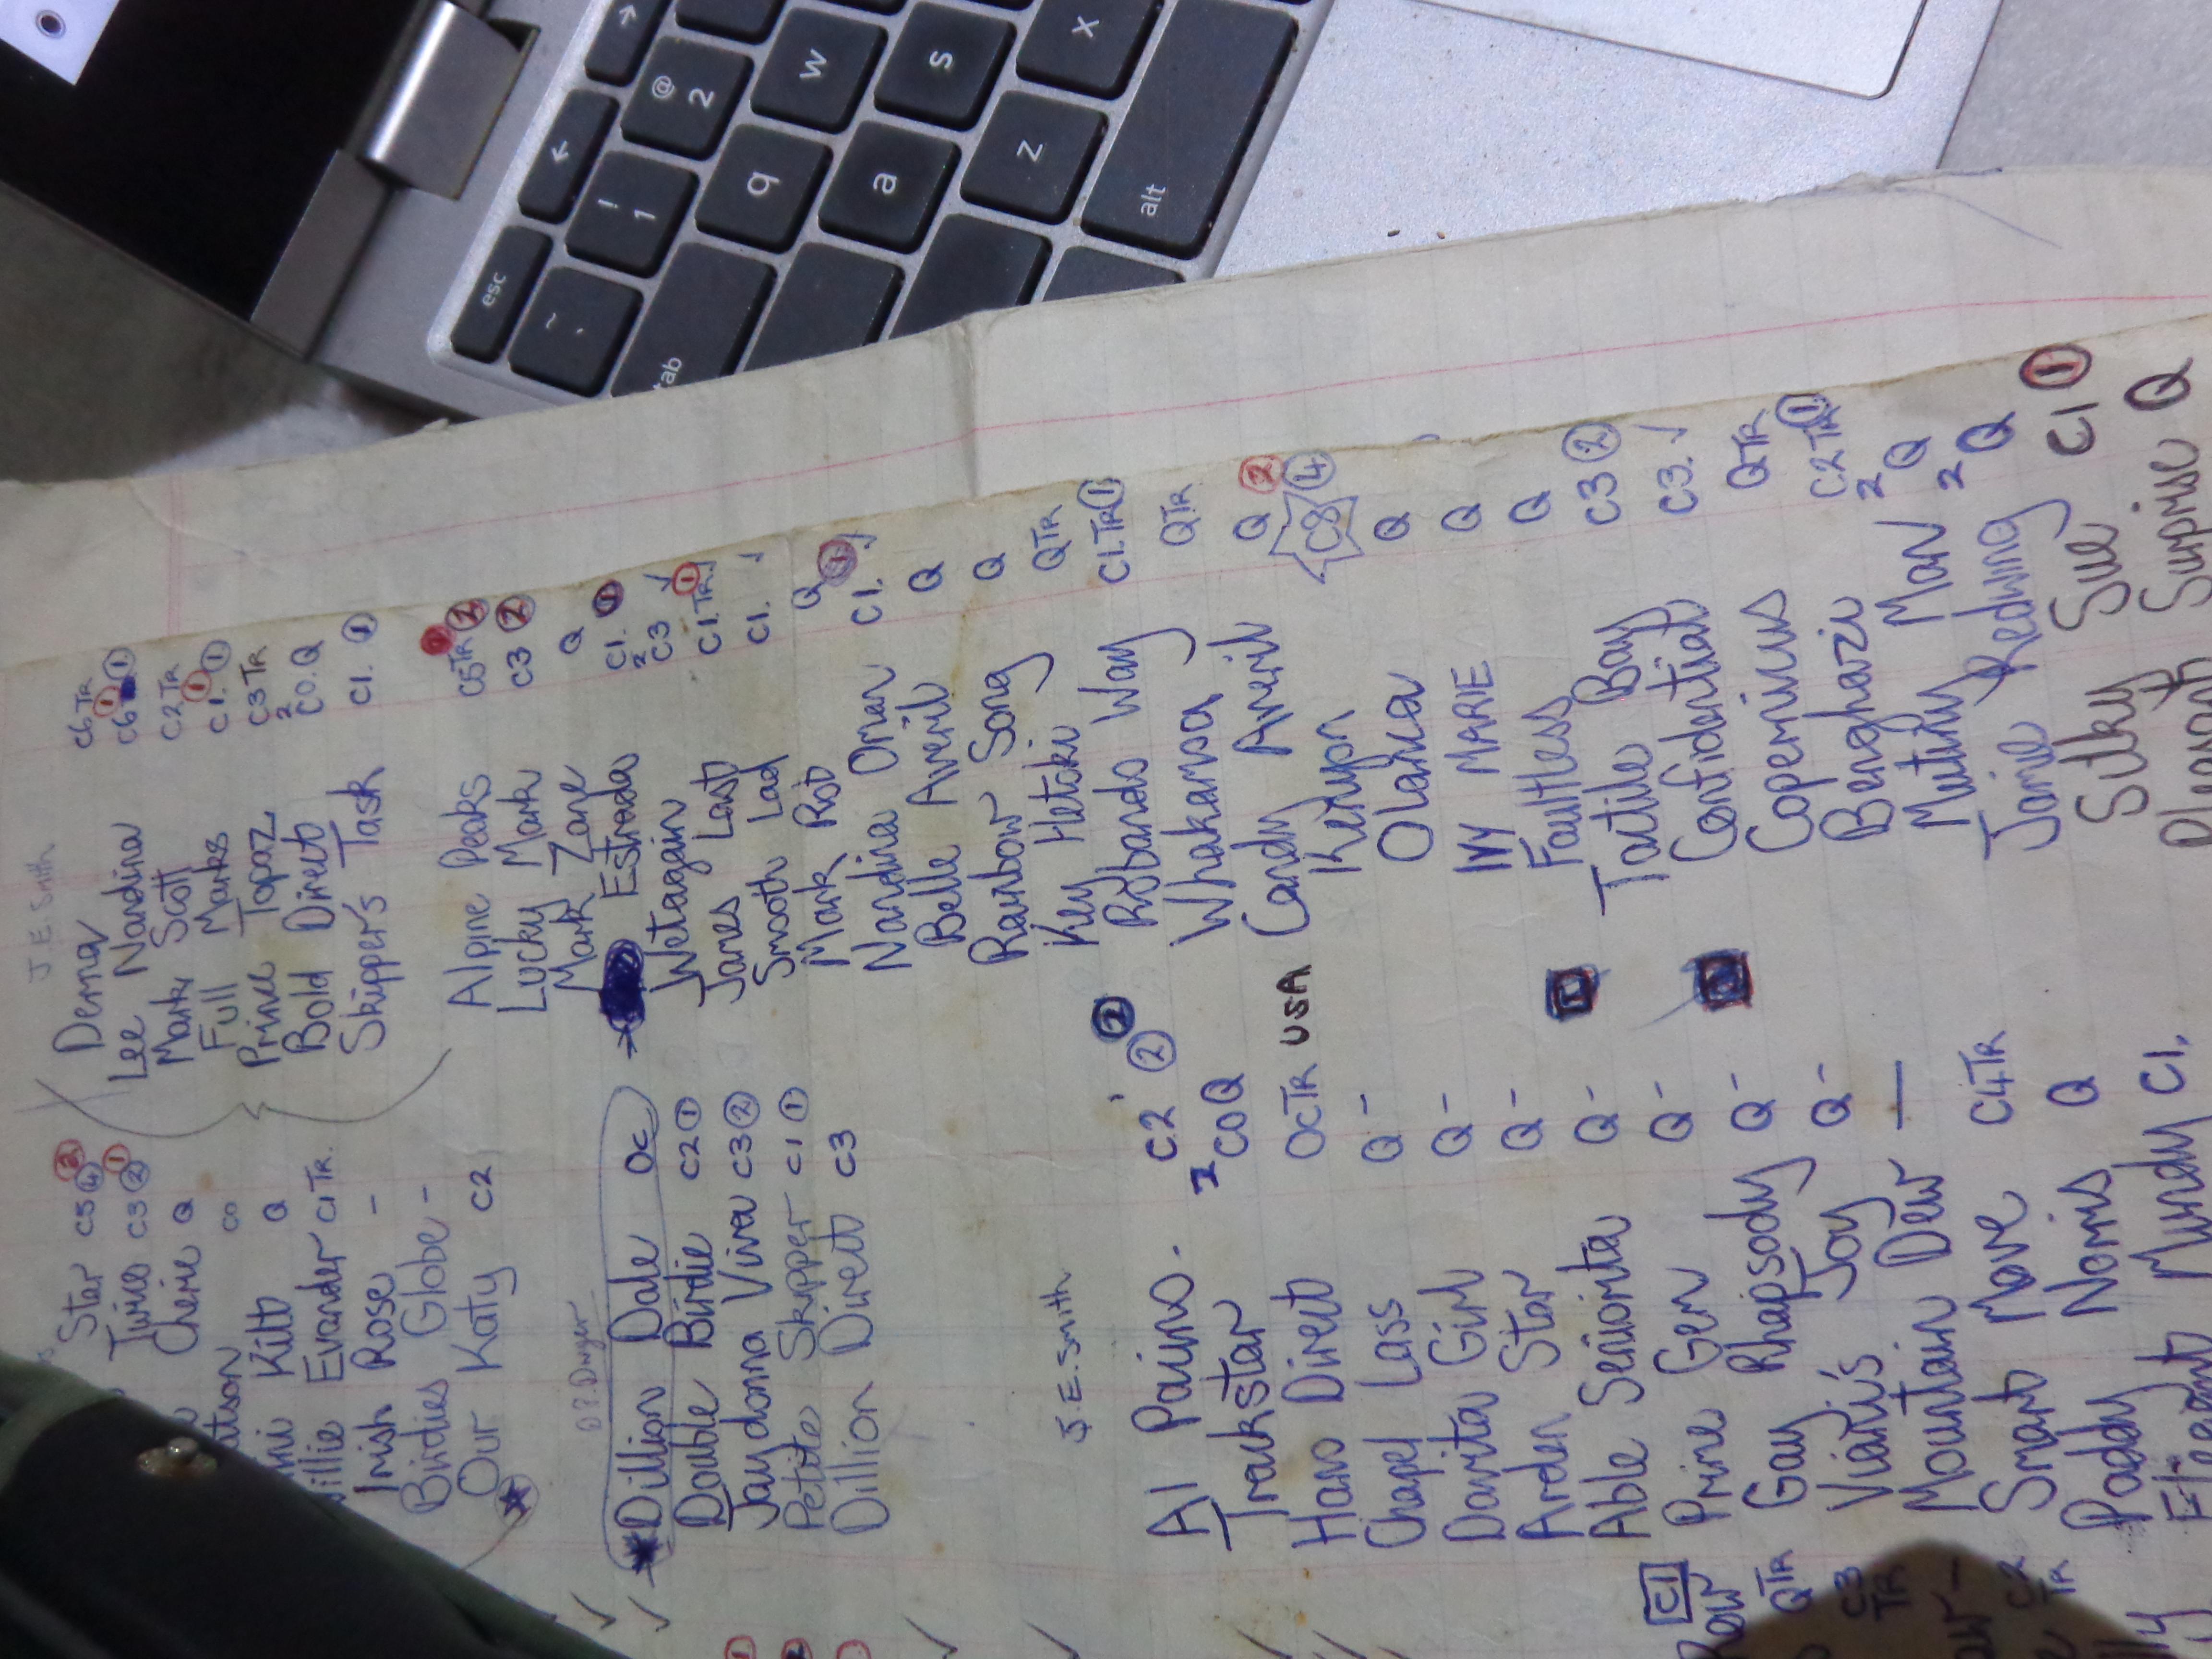 J.E. Smith
Star C5 ④ ②
Twice C3 ② ①
Cherie Q
CO
Kilt Q
Evander C1 TR.
Irish Rose -
Birdies Globe -
Our Katy C2
Derna C6 TR
Lee Nandina C6 ① ①
Mark Scott C2 TR
Full Marks C1. ① ①
Prince Topaz C3 TR
Bold Direct 2 CO.Q
Skipper's Task C1. ①
Alpine Peaks C5 TR ②
Lucky Mark C3 ②
Mark Zane Q
Estrada C1.
Wetagain 2 C3
James Last C1.TR. ①
Smooth Lad C1.
Mark Rist Q
Nandina Omen C1. ①
Belle Averil Q
Rainbow Song Q
Key Hetcki Q TR
Robando Way C1.TR ①
Whakamoa Q TR
Candy Averil Q ②
Kenyon C8 ④
Olanca Q
IVY MARIE Q
Faultless Q
Tactile Bay C3 ②
Confidential C3.
Copernicus Q TR
Benghazi C2 TR ①
Mutiny Man 2 Q
Jamie Redwing 2 Q
Silky Sue C1 ①
Surprise Q
D.P. Dwyer
Dillion Dale OC
Double Birdie C2 ①
Jaydonna Viva C3 ②
Petite Skipper C1 ①
Dillion Direct C3
J.E. Smith
A1 Paino. C2 ② ②
Trakstar 2 COQ
Hans Direct OCTR USA
Chapel Lass Q -
Darita Girl Q -
Arden Star Q -
Able Seniorita Q -
Prime Gem Q -
Gay Rhapsody Q -
Vian's Joy Q -
Mountain Dew —
Smart Move C4TR
Paddy Norris Q
Mundy C1.
C1
Q TR
C3
TR
C2
TR
esc
~ `
! 1
@ 2
tab
q
w
a
s
z
x
alt